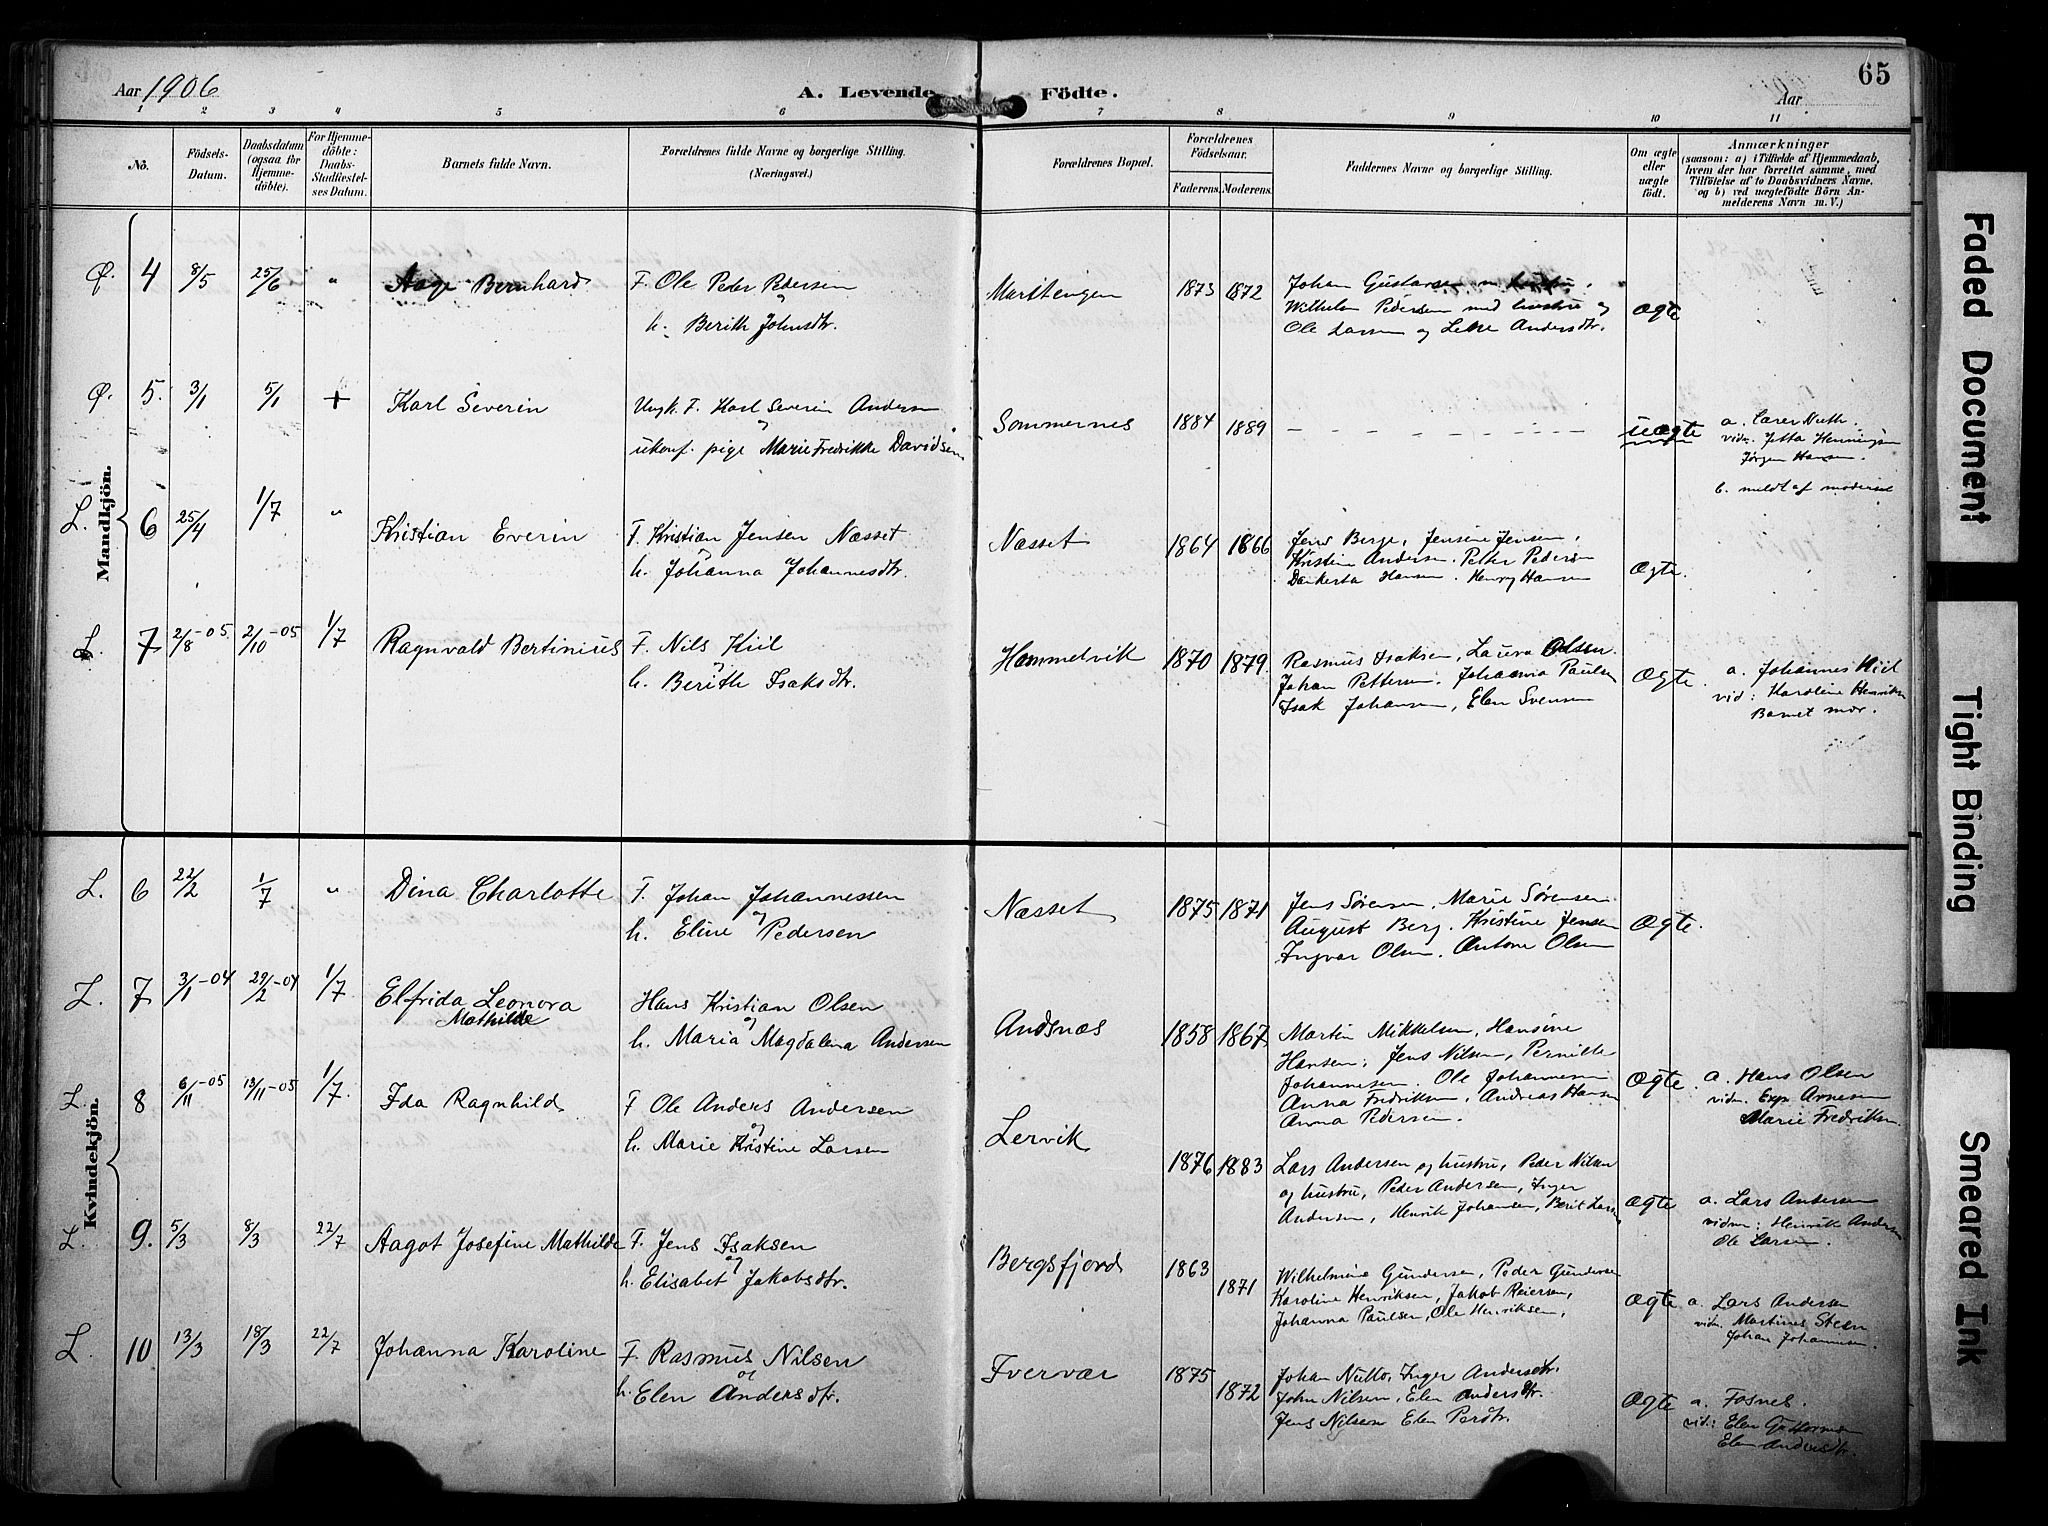 65
Aar 1906
A. Levende Födte.
Aar
1 2 3 4 5 6 7 8 9 10 11
No. Födsels-Datum. Daabsdatum (ogsaa for Hjemmedöbte). For Hjemmedöbte: Daabs-Stadfæstelses Datum. Barnets fulde Navn. Forældrenes fulde Navne og borgerlige Stilling. (Næringsvei.) Forældrenes Bopæl. Forældrenes Födselsaar. Faderens. Moderens. Faddernes Navne og borgerlige Stilling. Om ægte eller uægte födt. Anmærkninger
(saasom: a) i Tilfælde af Hjemmedaab, hvem der har forrettet samme, med Tilföielse af to Daabsvidners Navne, og b) ved uægtefödte Börn Anmelderens Navn m. V.)
Mandkjön.
Ø. 4 8/5 25/6 " Aage Bernhard F. Ole Peder Pedersen
og
h. Berith Johnsdtr.
1873 1872 Johan Gustavsen m. hustru,
Wilhelm Pedersen med hustru og
Ole Larsen og Andersdtr.
Ægte
Ø. 5. 3/1 5/1 + Karl Severin Ungk. F. Karl Severin Andersen
og
ukonf. pige Marie Fredrikke Davidsen
Sommernes 1884 1889 - - - - - - - - uægte a. Lærer Nuth.
vidn. Jetta Henningsen
Jørgen Hansen.
b. meldt af moderen
L. 6 25/4 1/7 " Kristian Everin F. Kristian Jensen Næsset
og
h. Johanna Johannesdtr.
Næsset 1864 1866 Jens Berge, Jensine Jensen,
Kristine Andersen. Petter Pedersen
Dankerta Hansen. Henry Hansen
Ægte.
L. 7 2/8-05. 2/10-05 1/7 Ragnvald Bertinius F. Nils Kiil
og
h. Berith Isaksdtr.
Hammelvik 1870 1879 Rasmus Isaksen, Laura Olsen.
Johan Pettersen. Johanna Paulsen
Isak Johansen, Elen Svensen
Ægte. a. Johannes Kiil
vid: Karoline Henriksen
Barnet mor.
Kvindekjön.
L. 6 22/2 1/7 " Dina Charlotte F. Johan Johannessen
og
h. Eline Pedersen
Næsset 1875 1871 Jens Sørensen, Marie Sørensen.
August Berg. Kristine Jensen
Ingvar Olsen. Antone Olsen
Ægte.
L. 7 3/1-04 29/2-04 1/7 Elfrida Leonora
Mathilde
Hans Kristian Olsen
og
h. Maria Magdalena Andersen
Andsnæs 1858 1867 Martin Mikkelsen, Hansine
Hansen, Jens Nilsen, Pernille
Johannesen. Ole Johannesen
Anna Fredriksen, Andreas Hansen
Anna Pedersen.
Ægte. a. Hans Olsen
vidn. Exp. Arnesen
Marie Fredriksen.
L. 8 6/11-05 13/11-05 1/7. Ida Ragnhild F Ole Anders Andersen
og
h. Marie Kristine Larsen
Lervik 1876 1883 Lars Andersen og hustru, Peder Nilsen
og hustru, Peder Andersen, Inger
Andersen, Henrik Johansen, Berit Larsen
Ægte a. Lars Andersen
vidne: Henrik Andersen
Ole Larsen.
L. 9. 5/3 8/3 22/7 Aagot Josefine Mathilde F. Jens Isaksen
og
h. Elisabet Jakobsdtr.
Bergsfjord 1863 1871 Wilhelmine Gundersen, Peder Gundersen
Karoline Henriksen, Jakob Reiersen,
Johanna Paulsen, Ole Henriksen,
Ægte a. Lars Andersen
vidn. Martinus Steen
Johan Johannesen.
L. 10 13/3 18/3 22/7 Johanna Karoline F. Rasmus Nilsen
og
h. Elen Andersdtr.
Tvervær 1875 1872 Johan Nutto, Inger Andersdtr.
John Nilsen, Elen Andersdtr.
Jens Nilsen Elen Perdtr.
Ægte a. Fosnes.
vid: Elen Guttormsen
Elen Andersdtr.
Faded Document
Tight Binding
Smeared Ink